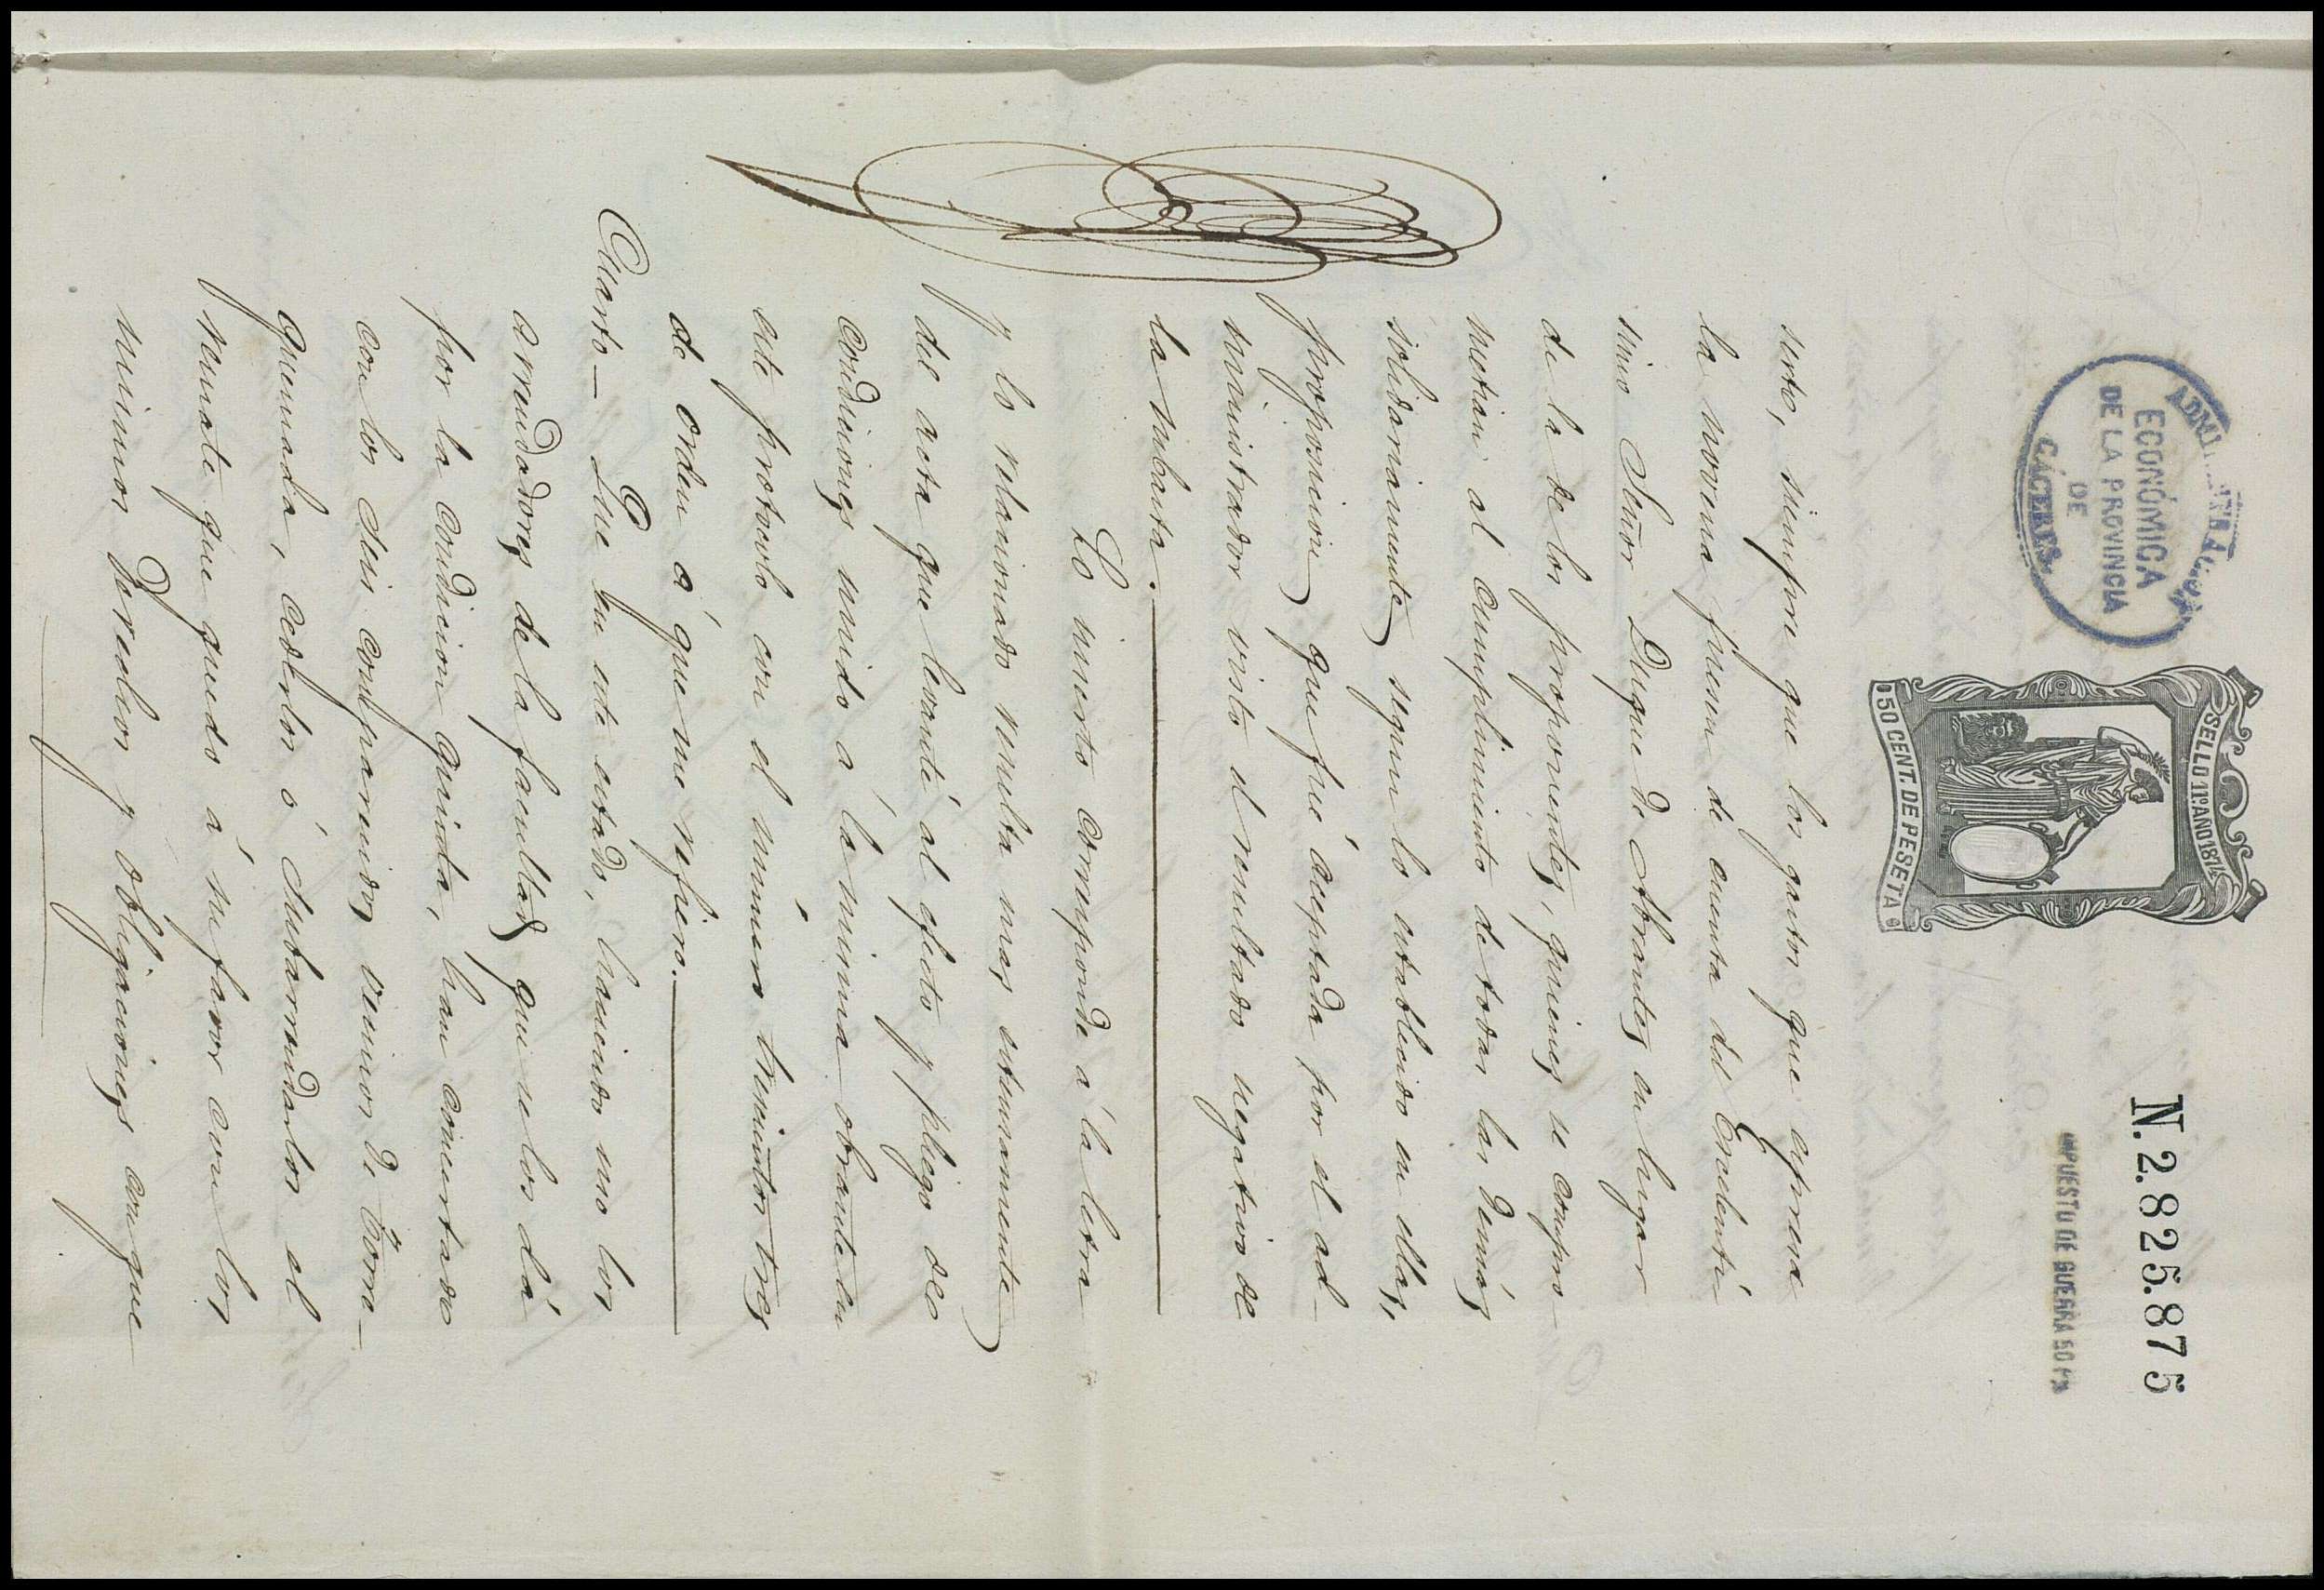 ADMINISTRACION
ECONÓMICA
DE LA PROVINCIA
DE
CÁCERES.
SELLO 11º AÑO 1874
50 CENT. DE PESETA
N. 2.825.875
IMPUESTO DE GUERRA 50
serto, siempre que los gastos que espresa
la novena fuesen de cuenta del Excelentí
simo Señor Duque de Abrantes en lugar
de la de los proponentes, quienes se compro-
metian al cumplimiento de todas las demás
solidariamente segun lo establecido en ellas,
proposicion que fué aceptada por el ad-
ministrador visto el resultado negativo de
la subasta.
Lo inserto corresponde á la letra
y lo relacionado resulta mas estensamente
del acta que levanté al efecto y pliego de
condiciones unido á la misma obrante en
este protocolo con el número trescientos tres
de orden á que me refiero.
Cuarto - Que en este estado, haciendo uso los
arrendadores de la facultad que se les dá
por la condicion quinta, han concertado
con los seis comparecidos vecinos de Torre-
quemada, cederlos ó subarrendarlos el
remate que quedó á su favor con los
mismos derechos y obligaciones con que